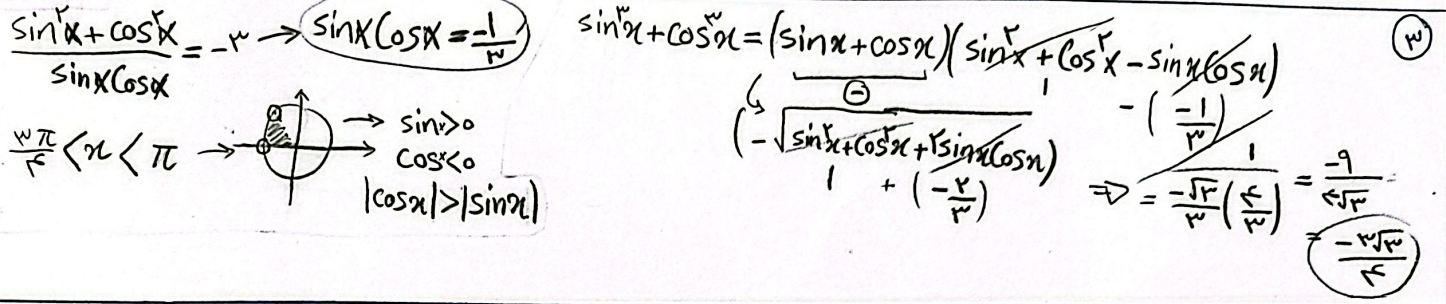 (sin²x + cos²x) / (sinx cosx) = -۳ → sinx cosx = -۱/۳
۳π/۴ < x < π → sinx>0
cosx<0
|cosx|>|sinx|
۳
sin³x + cos³x = (sinx + cosx)(sin²x + cos²x - sinx cosx)
⊖ 1 -(-1/۳)
(-√(sin²x + cos²x + ۲sinx cosx))
1 + (-۲/۳)
⇒ 1 / (-√۳/۳ (۴/۳)) = -۹/(۴√۳)
= -۳√۳/۴